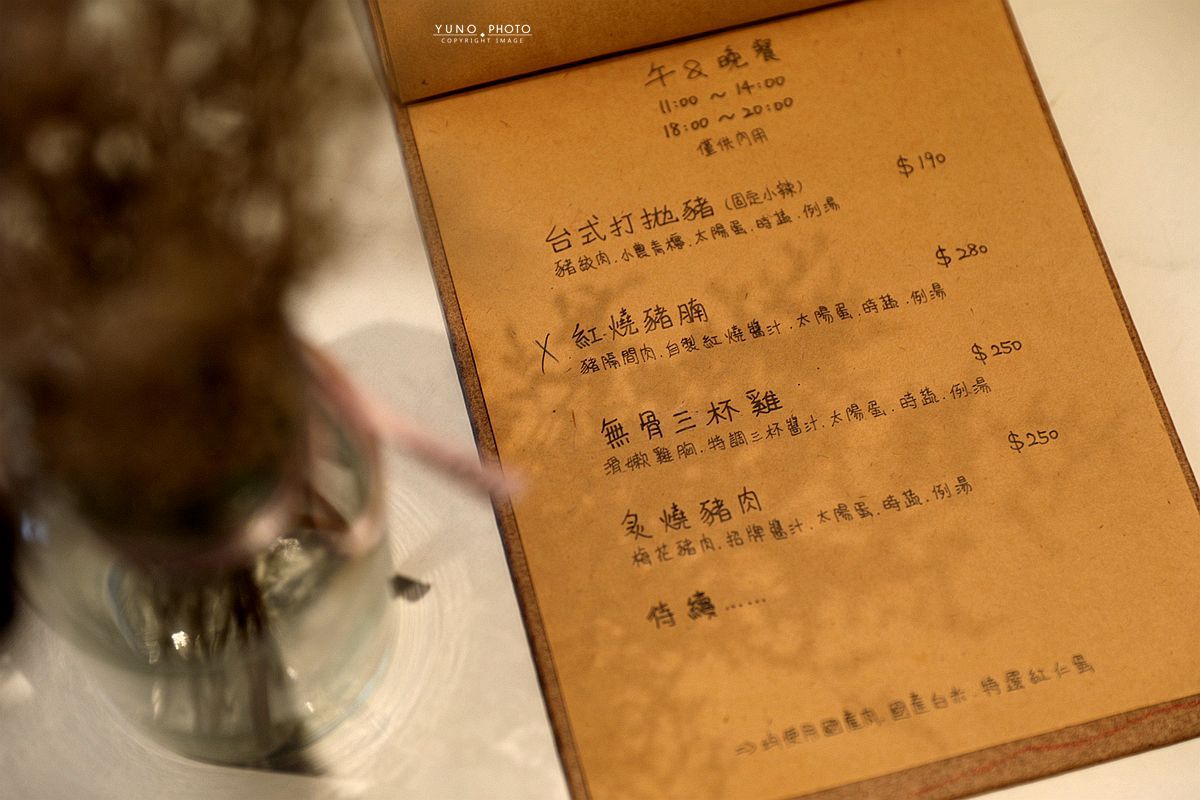 YUNO PHOTO
COPYRIGHT IMAGE
午&晚餐
11:00 ~ 14:00
18:00 ~ 20:00
僅供內用
$190
台式打拋豬 (固定小辣)
豬絞肉.小農青椒.太陽蛋.時蔬.例湯
$280
X 紅燒豬腩
豬隔間肉.自製紅燒醬汁.太陽蛋.時蔬.例湯
$250
無骨三杯雞
滑嫩雞胸.特調三杯醬汁.太陽蛋.時蔬.例湯
$250
炙燒豬肉
梅花豬肉.招牌醬汁.太陽蛋.時蔬.例湯
待續……
⇒均使用國產肉.國產白米.特選紅仁蛋